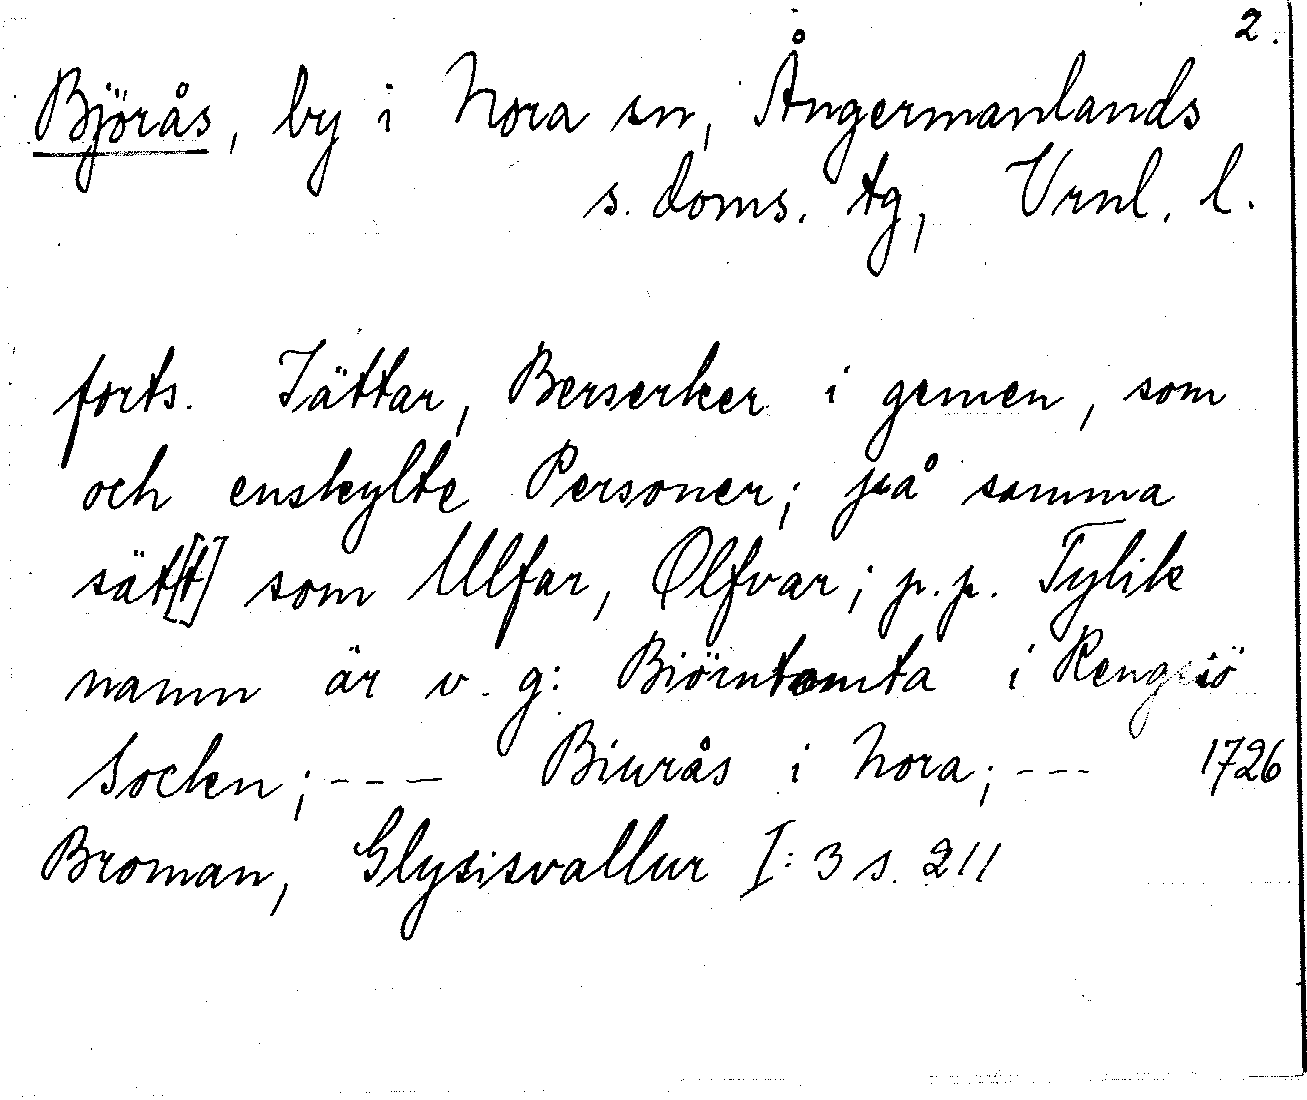 2.
Björås, by i Nora sn, Ångermanlands
s. doms. tg, Vrnl. l.
forts. Jättar, Berserker i gemen, som
och enskylte Personer; på samma
sätt[t] som Ulfar, Olfvar; p.p. Tylik
namn är v. g: Biörntomta i Rengsiö
Socken; --- Biurås i Nora; --- 1726
Broman, Glysisvallur I: 3 s. 211